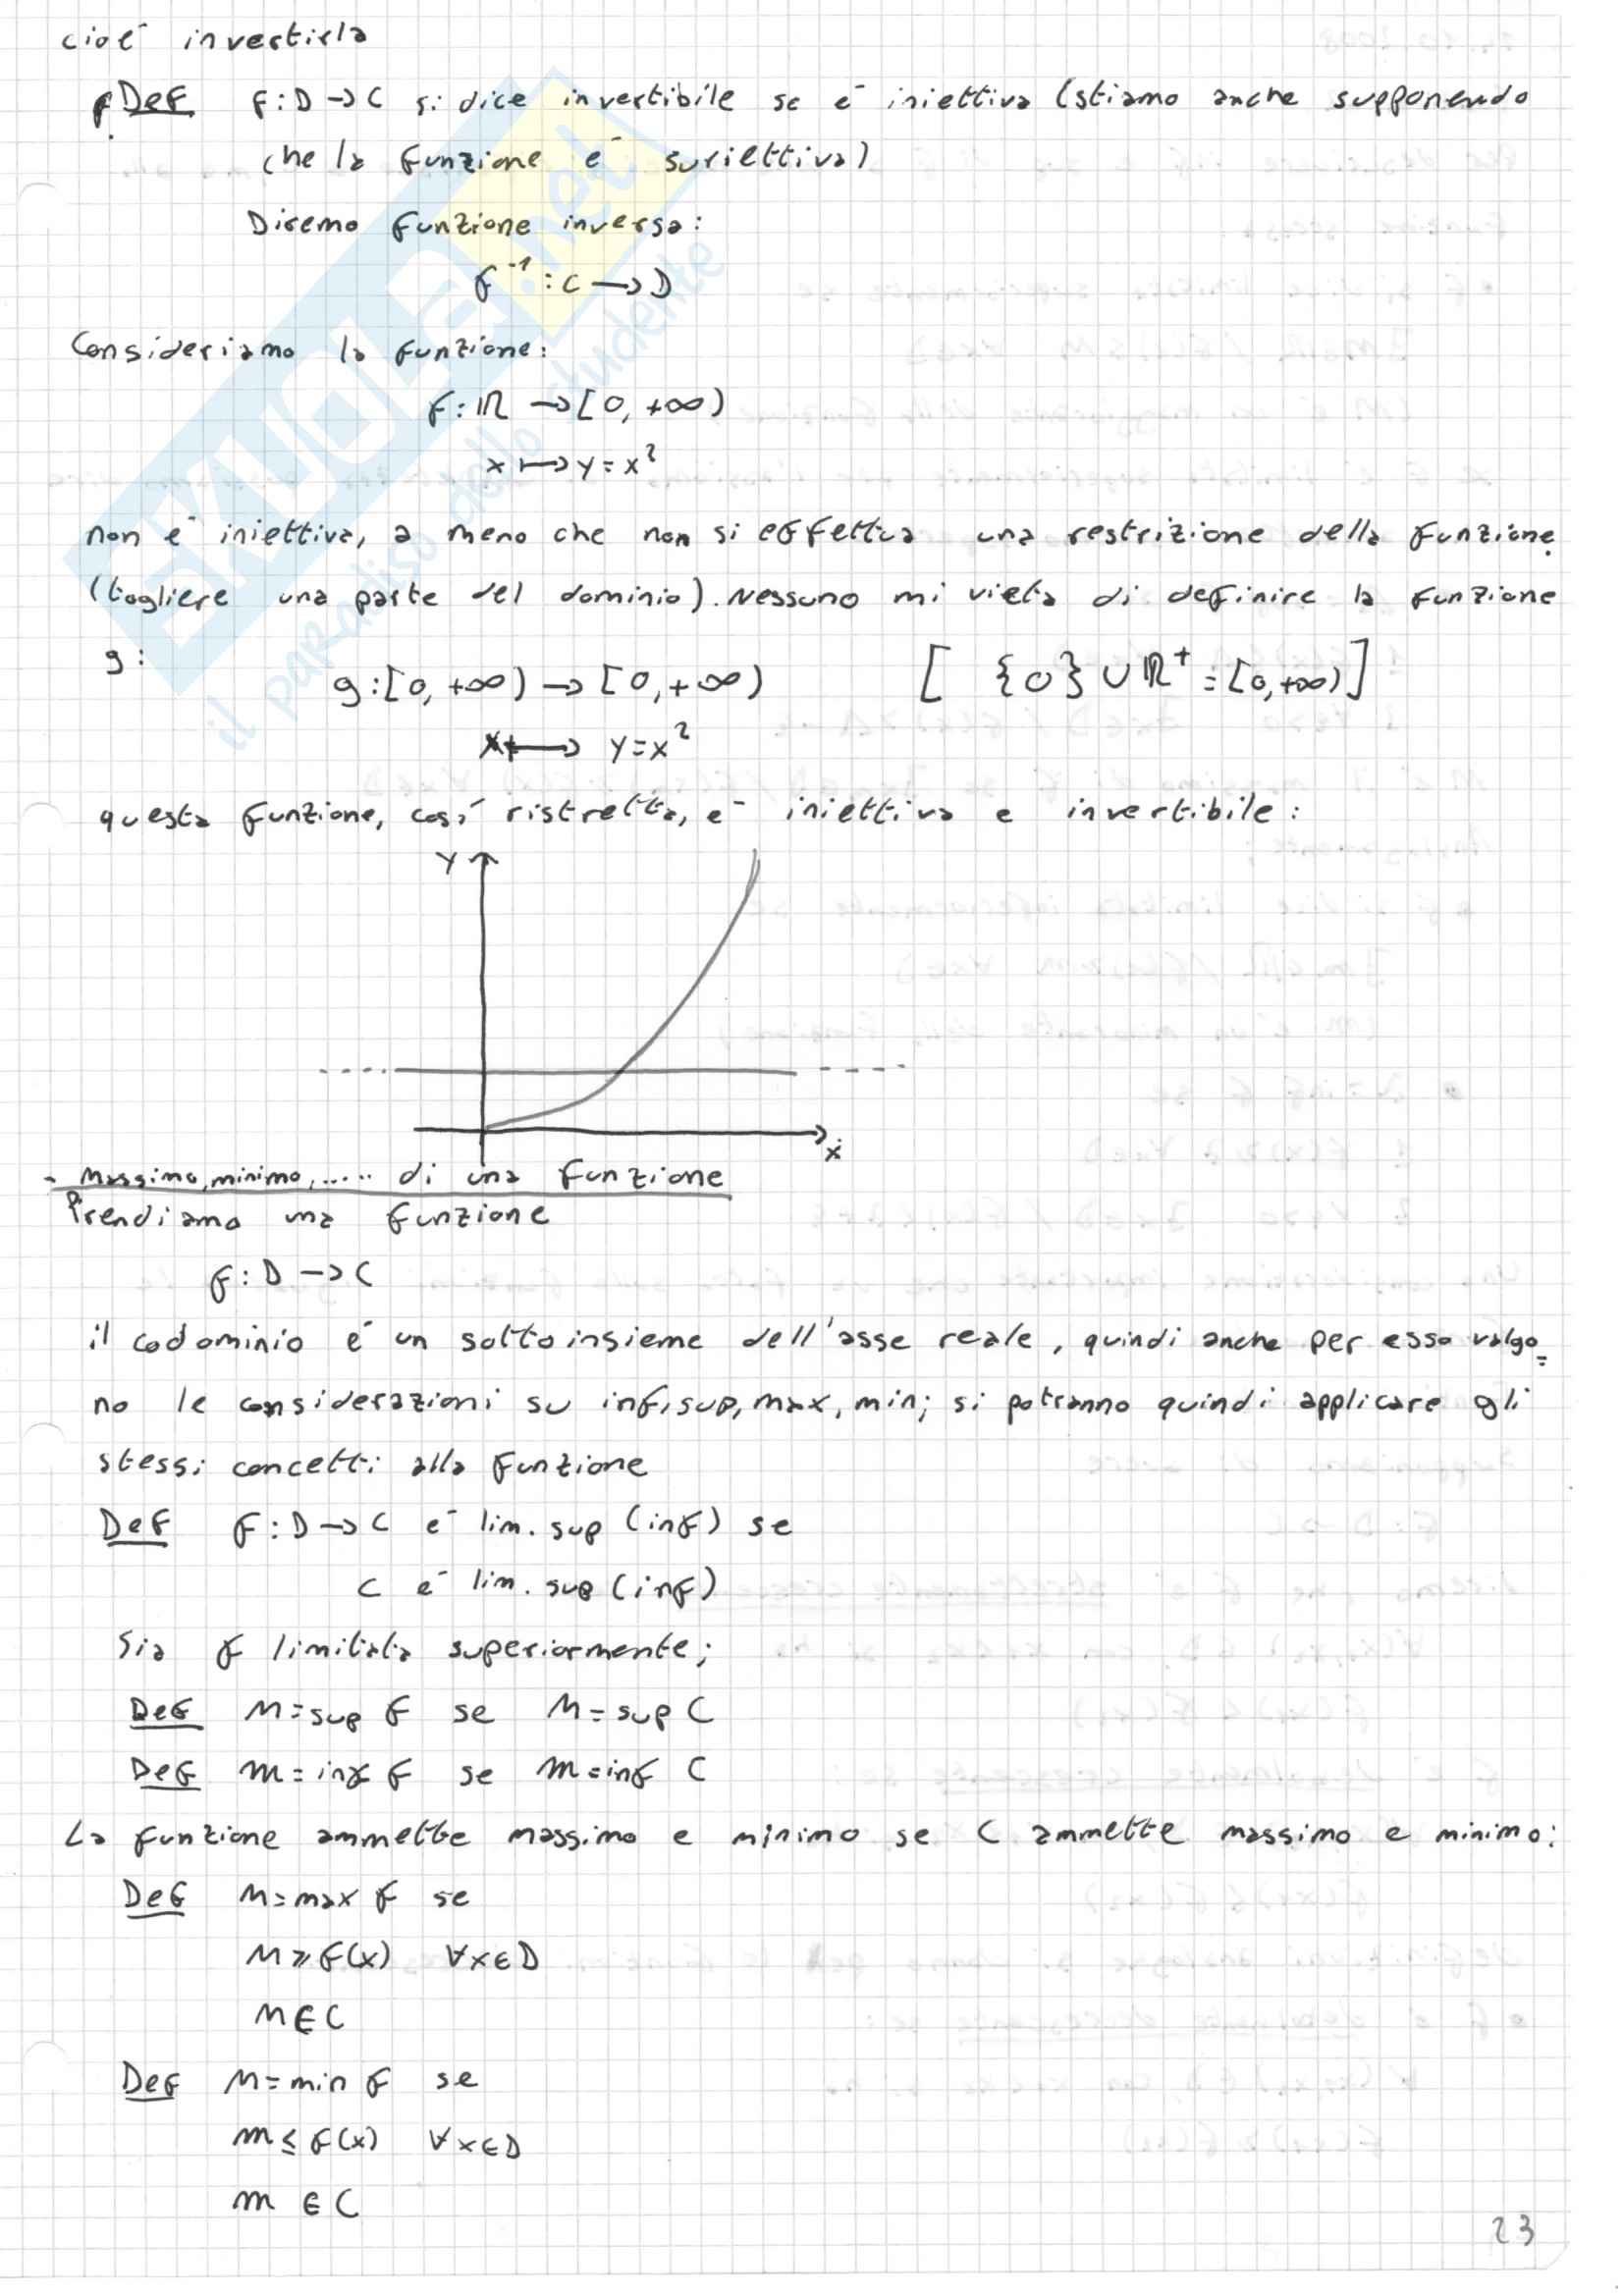 cioè invertirla
Def F:D→C si dice invertibile se è iniettiva (stiamo anche supponendo
che la funzione è suriettiva)
Diremo funzione inversa:
f⁻¹:C→D
Consideriamo la funzione:
f:ℝ→[0,+∞)
x↦y=x²
non è iniettiva, a meno che non si effettua una restrizione della funzione
(togliere una parte del dominio). Nessuno mi vieta di definire la funzione
g:
g:[0,+∞)→[0,+∞) [ {0}∪ℝ⁺=[0,+∞) ]
x↦y=x²
questa funzione, così ristretta, è iniettiva e invertibile:
y
x
- Massimo, minimo,..... di una funzione
Prendiamo una funzione
f:D→C
il codominio è un sottoinsieme dell'asse reale, quindi anche per esso valgo=
no le considerazioni su inf, sup, max, min; si potranno quindi applicare gli
stessi concetti alla funzione
Def f:D→C è lim. sup (inf) se
C è lim. sup (inf)
Sia f limitata superiormente;
Def M=sup f se M=sup C
Def m=inf f se m=inf C
La funzione ammette massimo e minimo se C ammette massimo e minimo:
Def M=max f se
M⩾f(x) ∀x∈D
M∈C
Def M=min f se
m≤f(x) ∀x∈D
m∈C
23
SKUOLA.net
il paradiso dello studente